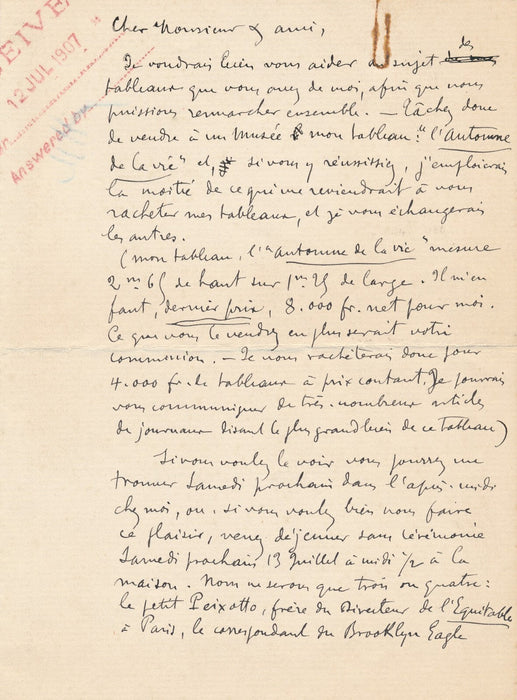 RECEIVED
12 JUL 1907
Answered on
Cher Monsieur & ami,
Je voudrais bien vous aider au sujet des
tableaux que vous avez de moi, afin que nous
puissions remarcher ensemble. — Tâchez donc
de vendre à un musée mon tableau : "l'Automne
de la vie" et, si vous y réussissiez, j'emploierais
la moitié de ce qui me reviendrait à vous
racheter mes tableaux, et je vous échangerais
les autres.
(mon tableau, l'"Automne de la vie" mesure
2m 65 de haut sur 1m 25 de large. Il m'en
faut, dernier prix, 8.000 fr. net pour moi.
Ce que vous le vendrez en plus serait votre
commission. — Je vous rachèterais donc pour
4.000 fr. de tableaux à prix coutant. Je pourrais
vous communiquer de très-nombreux articles
de journaux disant le plus grand bien de ce tableau)
Si vous voulez le voir vous pourrez me
trouver Samedi prochain dans l'après-midi
chez moi, ou, si vous voulez bien nous faire
ce plaisir, venez déjeuner sans cérémonie
Samedi prochain 13 Juillet à midi 1/2 à la
maison. Nous ne serons que trois ou quatre :
le petit Peixotto, frère du Directeur de l'Equitable
à Paris, le correspondant du Brooklyn Eagle